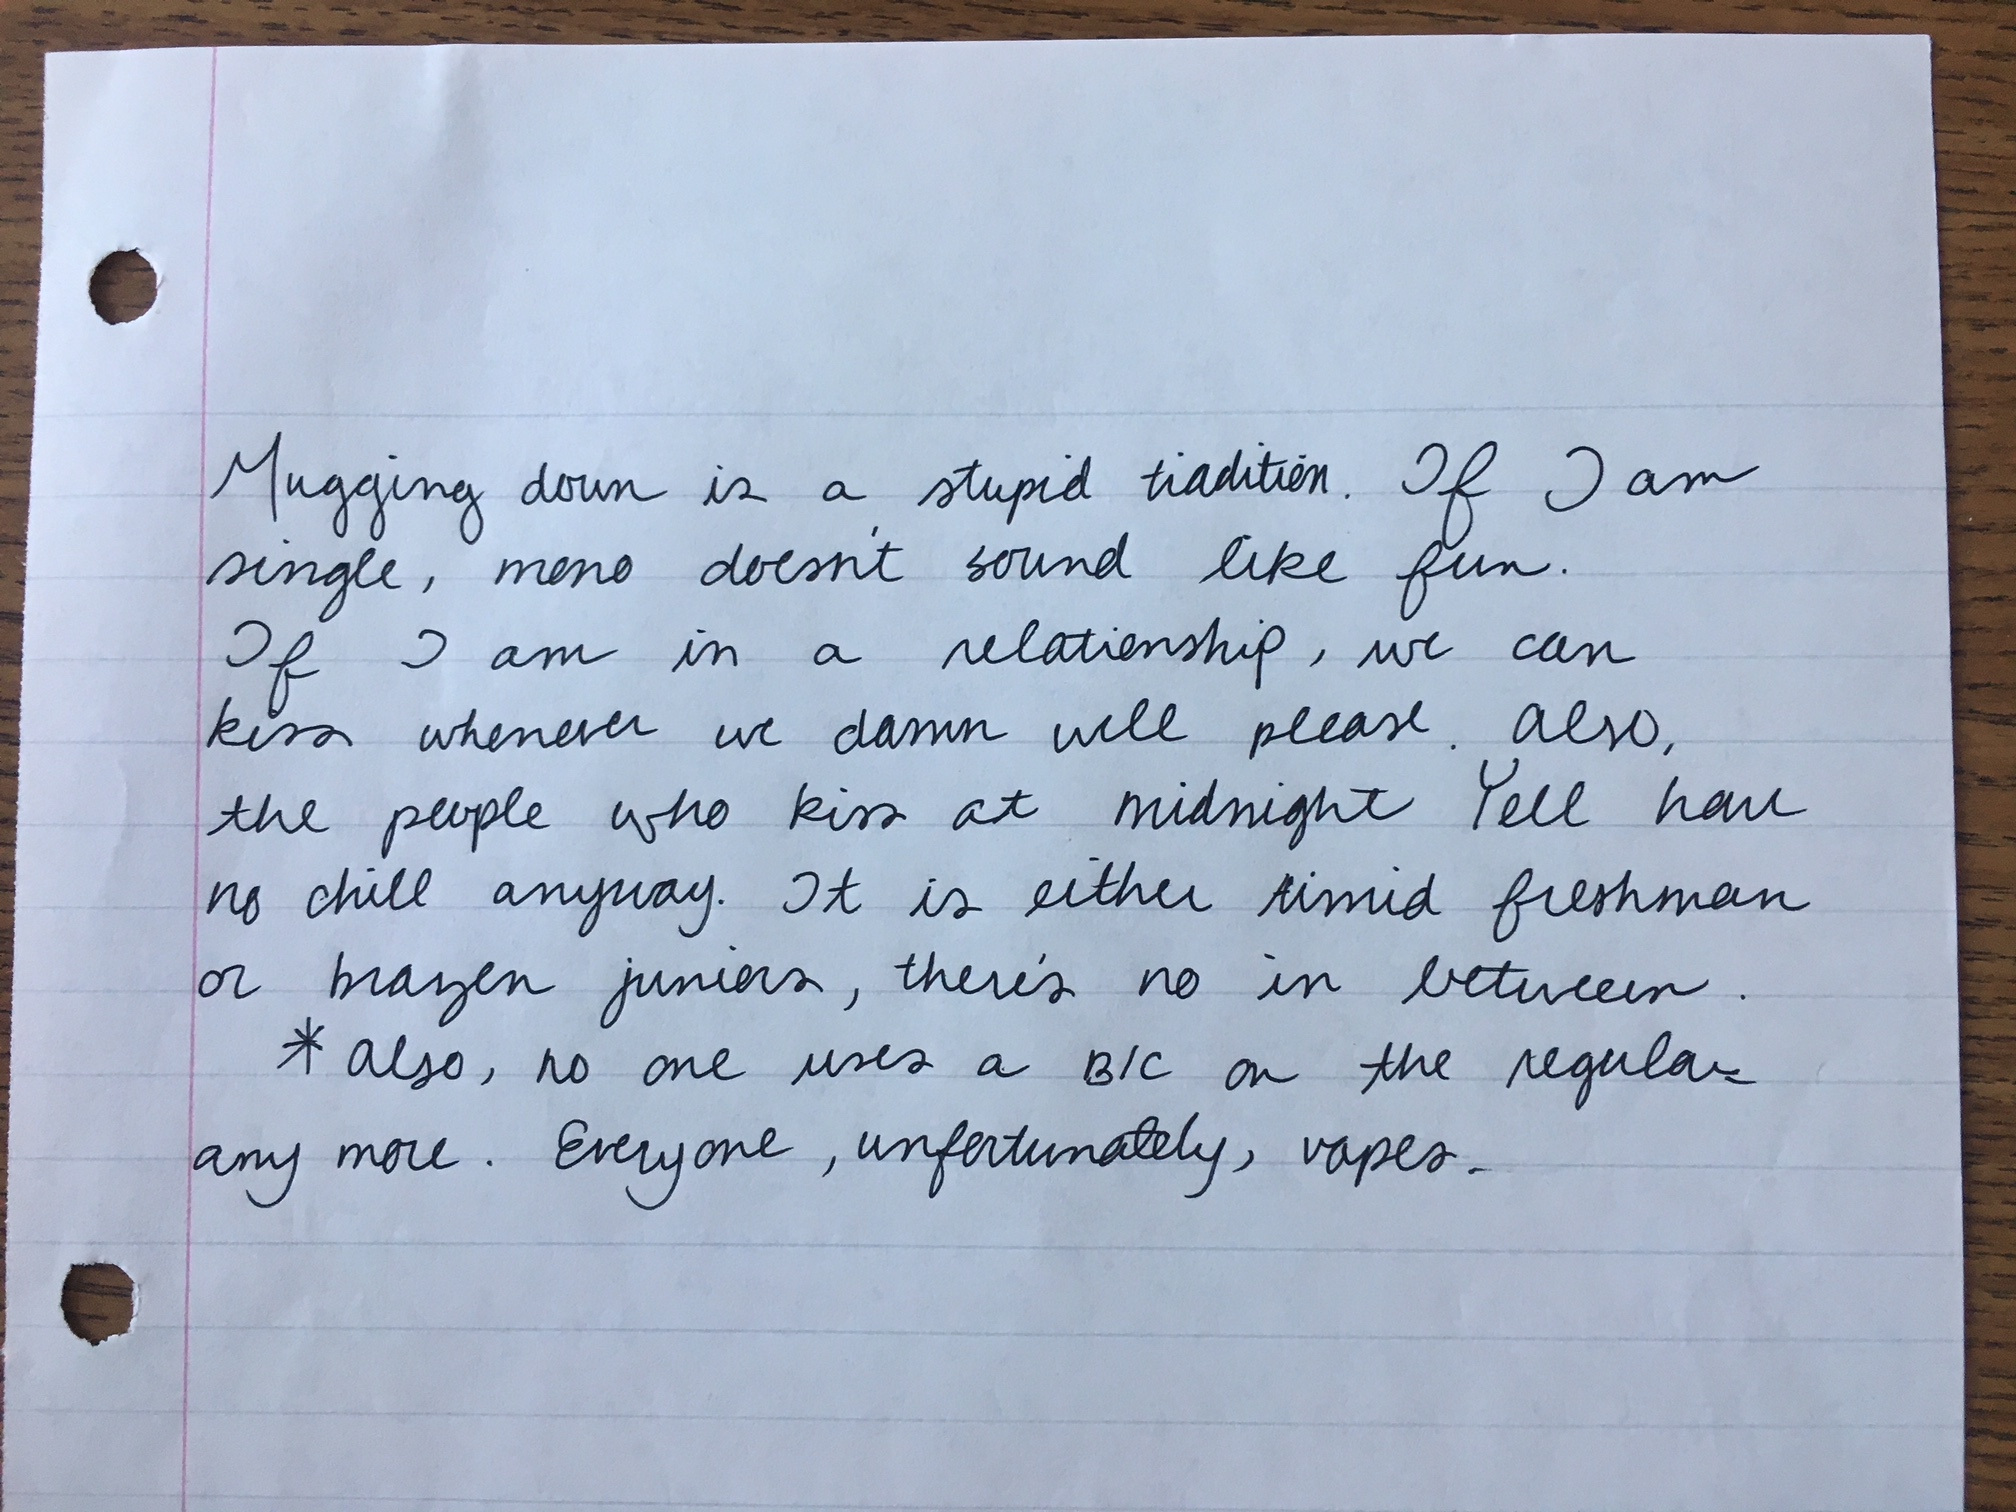 Mugging down is a stupid tradition. If I am
single, mono doesn't sound like fun.
If I am in a relationship, we can
kiss whenever we damn well please. Also,
the people who kiss at midnight Yell have
no chill anyway. It is either timid freshman
or brazen juniors, there's no in between.
* Also, no one uses a BIC on the regular
any more. Everyone, unfortunately, vapes.